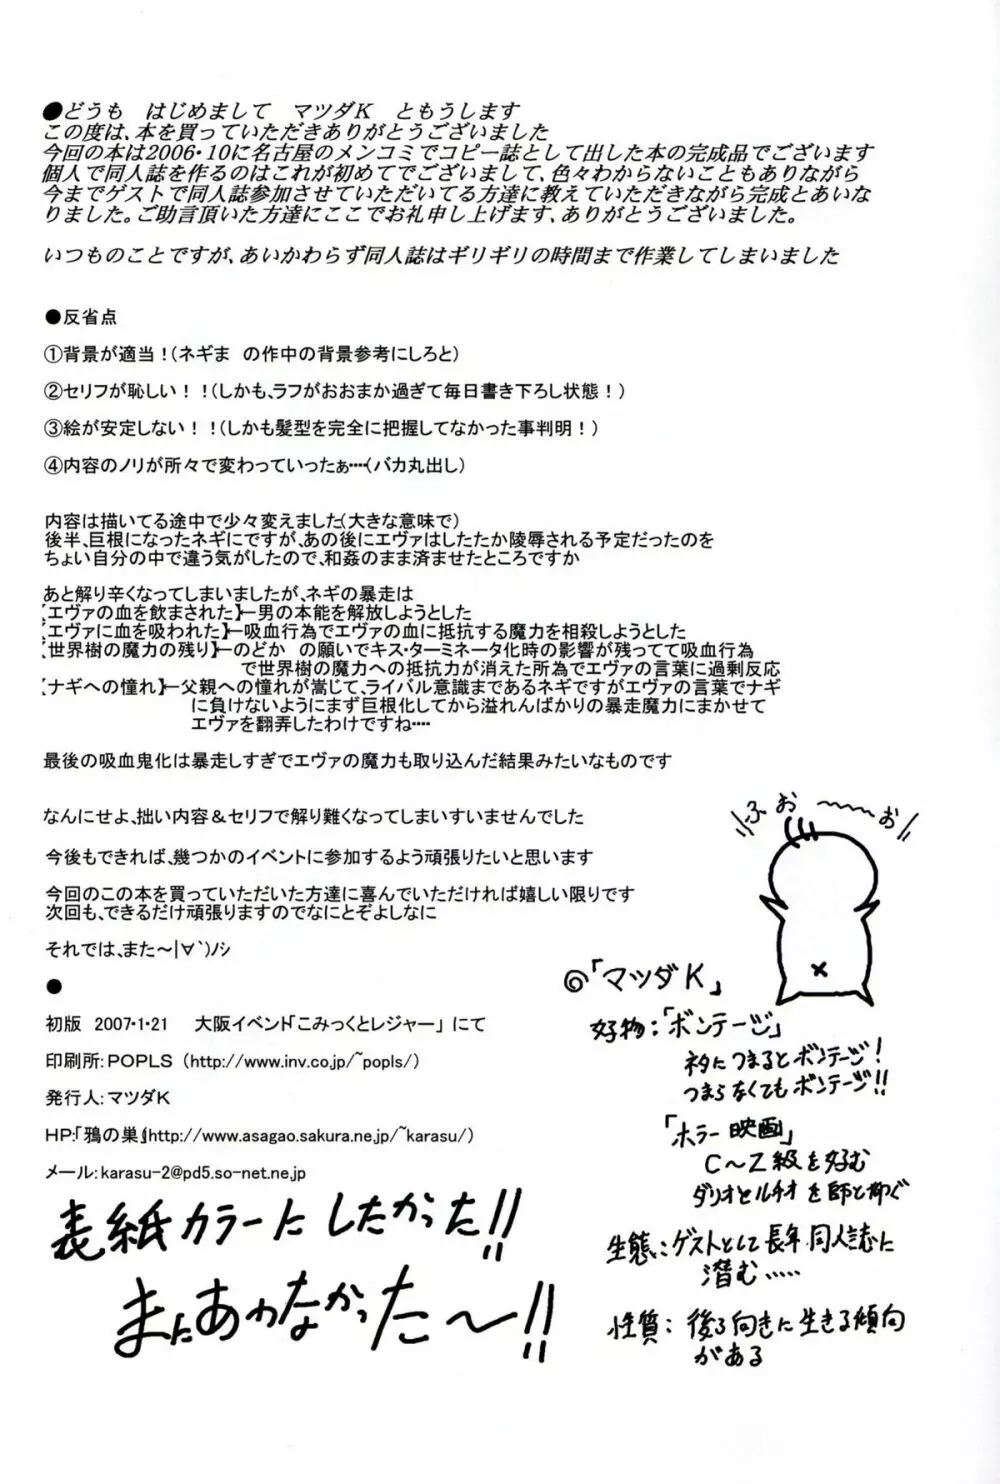 ●どうも　はじめまして　マツダK　ともうします
この度は、本を買っていただきありがとうございました
今回の本は2006・10に名古屋のメンコミでコピー誌として出した本の完成品でございます
個人で同人誌を作るのはこれが初めてでございまして、色々わからないこともありながら
今までゲストで同人誌参加させていただいてる方達に教えていただきながら完成とあいな
りました。ご助言頂いた方達にここでお礼申し上げます、ありがとうございました。
いつものことですが、あいかわらず同人誌はギリギリの時間まで作業してしまいました
●反省点
①背景が適当！（ネギま　の作中の背景参考にしろと）
②セリフが恥しい！！（しかも、ラフがおおまか過ぎて毎日書き下ろし状態！）
③絵が安定しない！！（しかも髪型を完全に把握してなかった事判明！）
④内容のノリが所々で変わっていったぁ・・・・（バカ丸出し）
内容は描いてる途中で少々変えました（大きな意味で）
後半、巨根になったネギにですが、あの後にエヴァはしたたか陵辱される予定だったのを
ちょい自分の中で違う気がしたので、和姦のまま済ませたところですか
あと解り辛くなってしまいましたが、ネギの暴走は
【エヴァの血を飲まされた】ー男の本能を解放しようとした
【エヴァに血を吸われた】ー吸血行為でエヴァの血に抵抗する魔力を相殺しようとした
【世界樹の魔力の残り】ーのどか　の願いでキス・ターミネータ化時の影響が残ってて吸血行為
で世界樹の魔力への抵抗力が消えた所為でエヴァの言葉に過剰反応
【ナギへの憧れ】ー父親への憧れが嵩じて、ライバル意識まであるネギですがエヴァの言葉でナギ
に負けないようにまず巨根化してから溢れんばかりの暴走魔力にまかせて
エヴァを翻弄したわけですね・・・・
最後の吸血鬼化は暴走しすぎでエヴァの魔力も取り込んだ結果みたいなものです
なんにせよ、拙い内容＆セリフで解り難くなってしまいすいませんでした
今後もできれば、幾つかのイベントに参加するよう頑張りたいと思います
今回のこの本を買っていただいた方達に喜んでいただければ嬉しい限りです
次回も、できるだけ頑張りますのでなにとぞよしなに
それでは、また～|∀｀)ﾉｼ
●
初版　2007・1・21　　大阪イベント「こみっくとレジャー」 にて
印刷所：POPLS　（http://www.inv.co.jp/~popls/）
発行人：マツダK
HP：「鴉の巣」http://www.asagao.sakura.ne.jp/~karasu/）
メール：karasu-2@pd5.so-net.ne.jp
表紙カラーにしたかった!!
まにあわなかった～!!
ふぉ～～お
◎「マツダK」
好物：「ボンテージ」
ネタにつまるとボンテージ！
つまらなくてもボンテージ!!
「ホラー映画」
C～Z級を好む
ダリオとルチオを師と仰ぐ
生態：ゲストとして長年同人誌に
潜む・・・・・
性質：後ろ向きに生きる傾向
がある